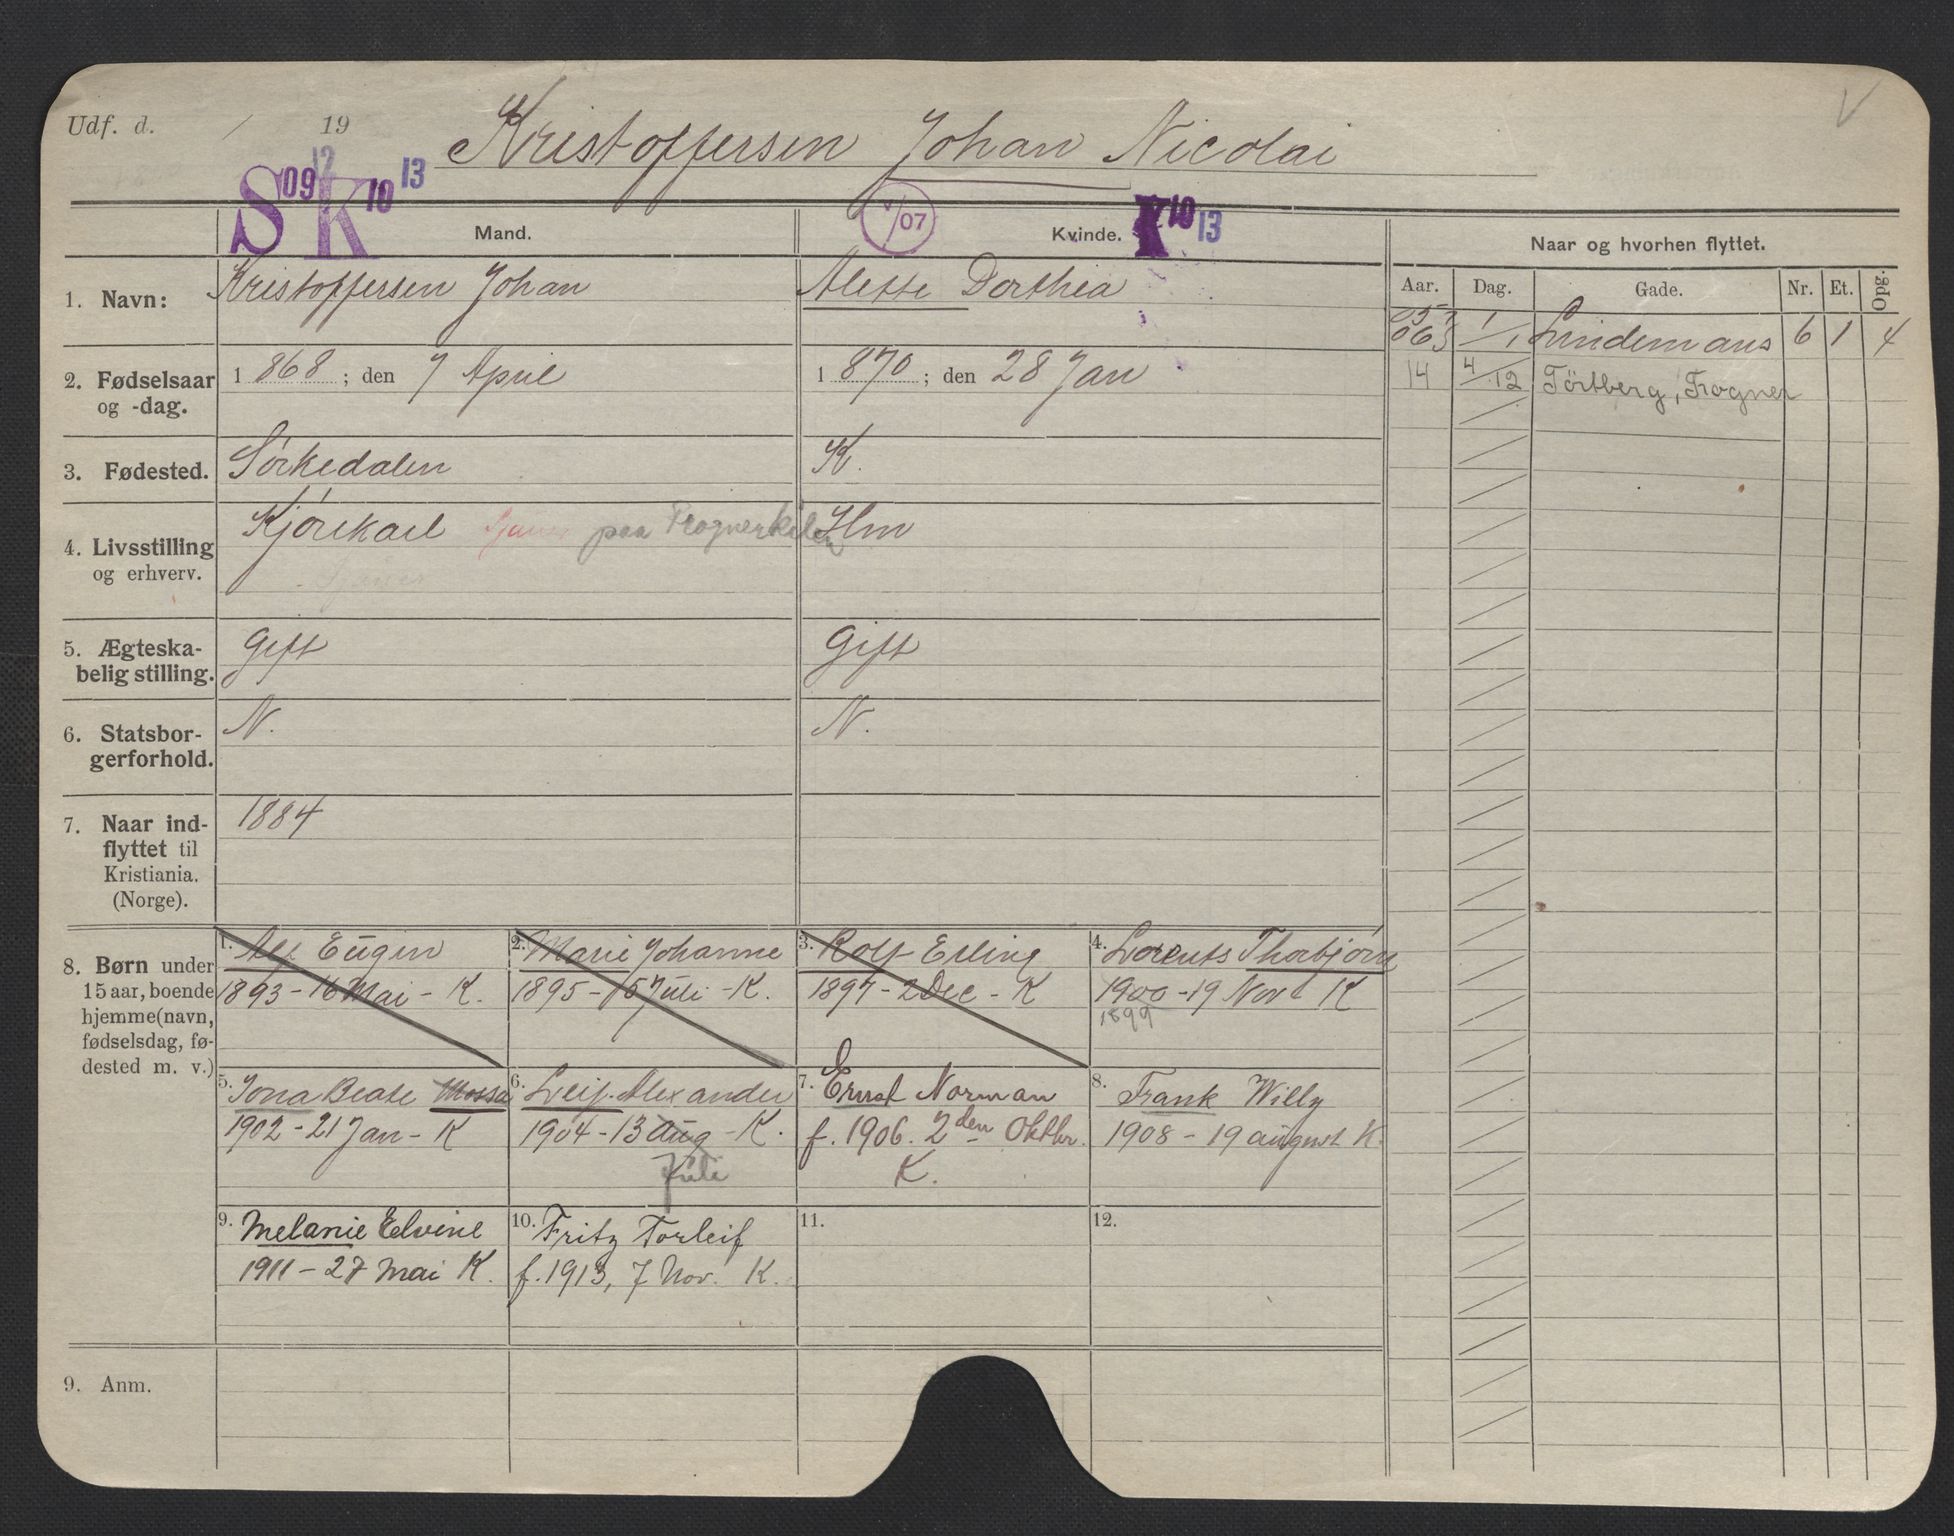 Udf. d. / 19
Kristoffersen Johan Nicolai
V
S 09 12 K 10 13
V/07
K 10 13
Mand.
Kvinde.
Naar og hvorhen flyttet.
Aar. Dag. Gade. Nr. Et. Opg.
1. Navn: Kristoffersen Johan
Alette Dorthea
2. Fødselsaar og -dag.
1 868 ; den 7 April
1 870 ; den 28 Jan
3. Fødested. Sørkedalen
K.
4. Livsstilling og erhverv.
Kjørekarl paa Frognerkilen
Hm
5. Ægteska-
belig stilling.
Gift
Gift
6. Statsbor-
gerforhold.
N.
N.
7. Naar ind-
flyttet til
Kristiania.
(Norge).
1884
8. Børn under
15 aar, boende
hjemme (navn,
fødselsdag, fø-
dested m. v.)
1. Alf Eugen
1893 - 16 Mai - K.
2. Marie Johanne
1895 - 15 Juli - K.
3. Rolf Erling
1897 - 2 Dec - K
4. Lorents Thorbjørn
1900 - 19 Nov K
1899
5. Jona Beate
1902 - 21 Jan - K
6. Leif Alexander
1904 - 13 Aug - K.
Juli
7. Ernst Norman
f. 1906. 2den Oktbr.
K.
8. Frank Willy
1908 - 19 august K.
9. Melanie Elvine
1911 - 27 Mai K.
10. Fritz Torleif
f. 1913, 7 Nov. K.
11.
12.
9. Anm.
05
06 1/1 Lindemans 6 1 4
14 4/12 Tørtberg, Frogner